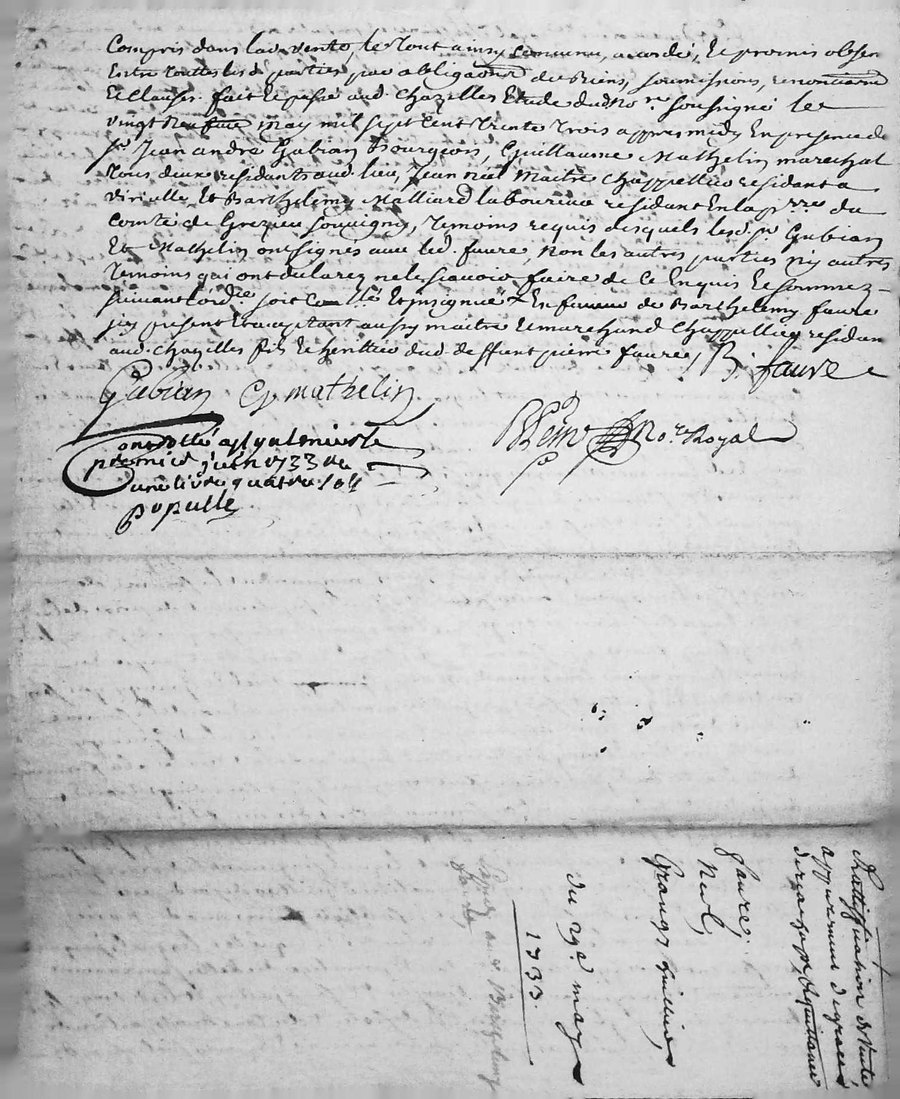 Compris dans lad. vente, le tout ainsy convenu, accordé, et promis obser
entre touttes lesd. parties par obligaon de Biens, soumissions, renonciaons
et clauses. fait et passé aud. chazelles Etude dud. No.re soussigné le
vingt neufuie may mil sept cent trente trois appres midy En presence de
Sr. Jean andré Gubian Bourgeois, Guillaume Mathelin marechal
tous deux residants aud. lieu, Jean Maitre chappellier residant a
virielle, Et Barthelemy Malliard laboureur residant En la p.rre du
comté de Grezieu Souvigny, temoins requis desquels lesd. Sr. Gubian
Et Mathelin ont signés avec led. faure, Non les autres parties ny autres
temoins qui ont declarez ne le sçavoir faire de ce Enquis et sommez
suivant lord.ce soit Collé Et insignué En faveur de Barthelemy faure
icy present Et acceptant aussy maitre et marchand chappellier residan
aud. chazelles fils et heritier dud. deffunt pierre faure, B. faure
Gubian G mathelin
No.re Royal
Controllé a St galmier le
premier juin 1733 Re
une livre quatre sols
Populle
Rattiffication de vente
appurement de graces
de rachapt, et quittance
faure,
Neel
Grange
du 29e. may
1733